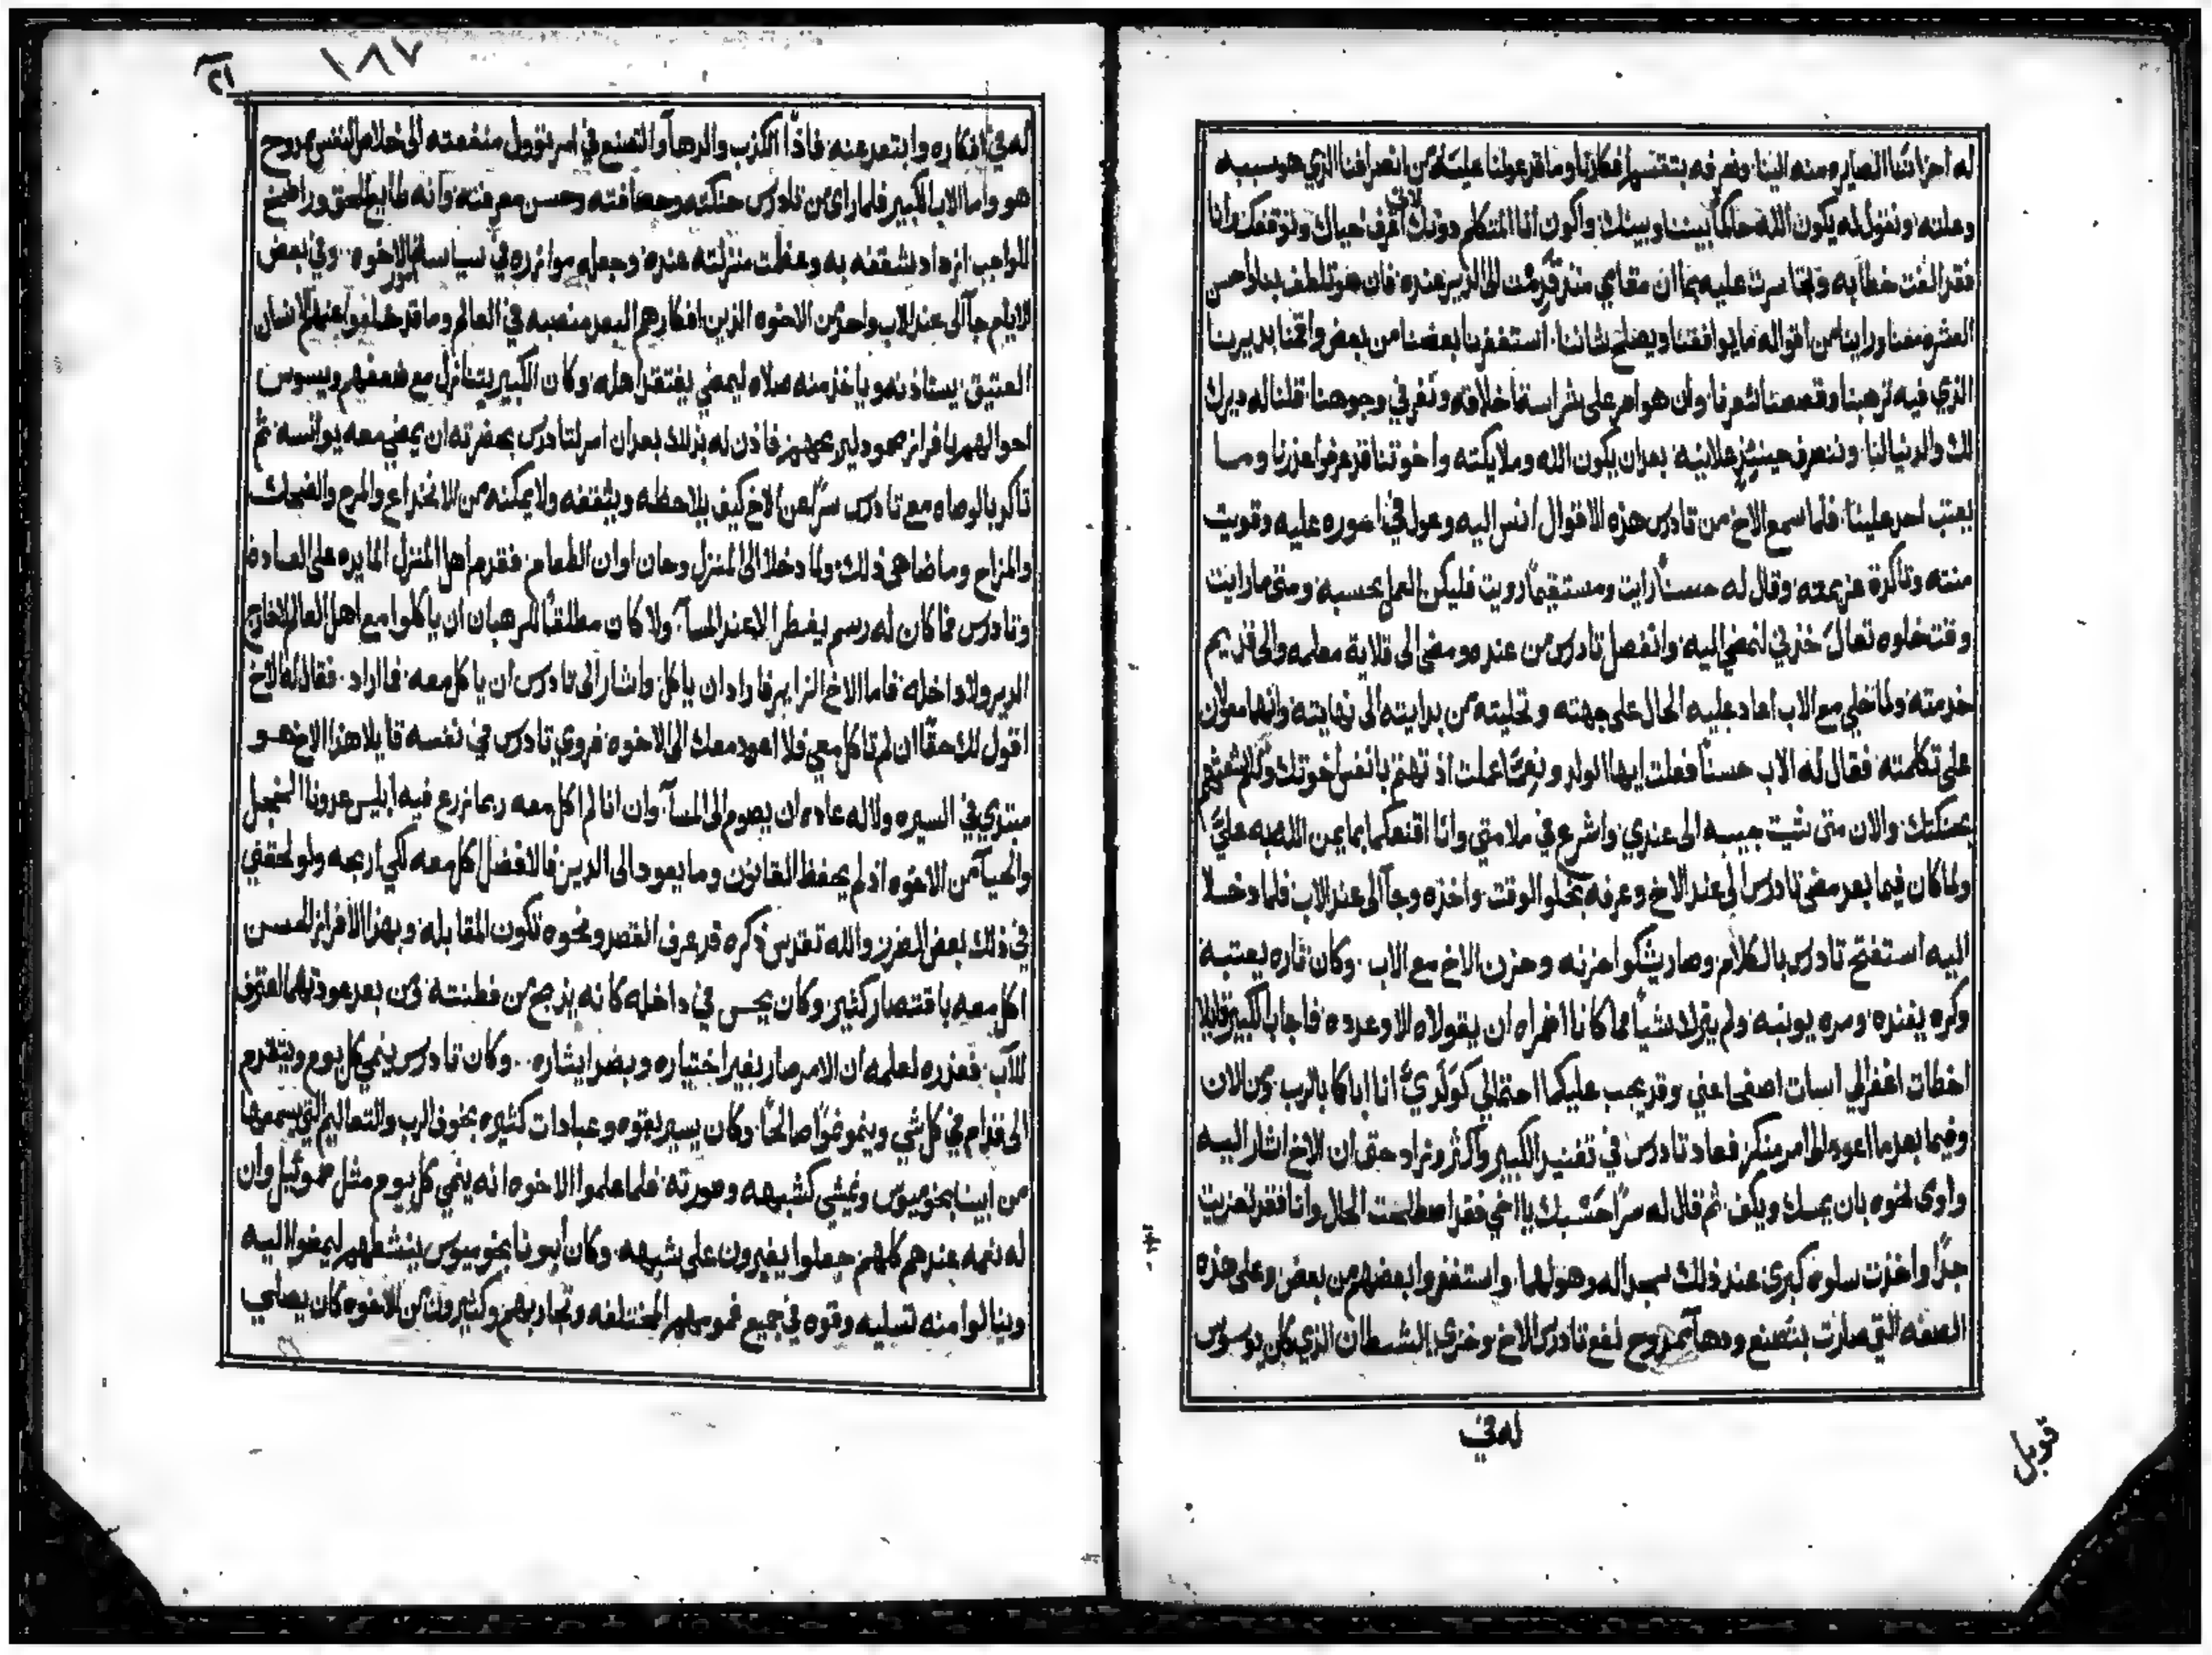 له احزاننا الصايره منه الينا ونعرفه بتقسم افكارنا وما قد عولنا عليه من انصرافنا الذي هو سببه
وعلته ونقول له يكون الله حاكماً بيننا وبينك واكون انا المتكلم دونك لاني اعرف حياك وتوقفك وانا
فقد الفت خطابه وتجاسرت عليه بما ان مقامي منذ قدمت الى الدير عنده فان هو تلطف بنا واحسن
العشره معنا وراينا من اقواله ما يوافقنا ويصلح شاننا استغفرنا بعضنا من بعض واقمنا بديرنا
الذي فيه ترهبنا وقصصنا شعرنا وان هو امر على شراسة اخلاقه وتغر في وجوهنا قلنا له ديرك
لك والدنيا لنا وننصرف حينيذٍ علانيه بعد ان يكون الله وملايكته واخوتنا قد عرفوا عذرنا وما
يعتب احد علينا فلما سمع الاخ من تادرس هذه الاقوال انس اليه وعول في اموره عليه وقويت
منته وتاكدة عزيمته وقال له حسناً رايت ومستقيماً رويت فليكن العمل بحسبه ومتى ما رايت
وقت خلوه تعال خذني لنمضي اليه وانفصل تادرس من عنده ومضى الى قلاية معلمه والى قديم
خدمته ولما خلي مع الاب اعاد عليه الحال على جهته وتحليته من بدايته الى نهايته وانهما معولان
على تكلمته فقال له الاب حسناً فعلت ايها الولد ونعماً عملت اذ تهتم بانفس اخوتك
بحنكتك والان متى شيت جيبه الى عندي واشرع في ملامتي وانا اقنعكما بما يمن الله به عليَّ
ولما كان فيما بعد مضى تادرس الى عند الاخ وعرفه بخلو الوقت واخذه وجآ الى عند الاب فلما دخلا
اليه استفتح تادرس بالكلام وصار يشكوا حزنه وحزن الاخ مع الاب وكان تاره يعتبه
وكره يفنده ومره يونبه ولم يترك شياً مما كانا اضمراه ان يقولاه الا وعدده فاجاب الكبير قايلا
اخطات اغفرا لي اسات اصفحا عني وقد يجب عليكما احتمالي كولدي انا اباكما بالرب ومن الان
وفيما بعد ما اعود الى امر منكر فعاد تادرس في تفنيد الكبير واكثر وزاد حتى ان الاخ اشار اليه
واوى نحوه بان يمسك ويكف ثم قال له سراً حسبك يا اخي فقد اصطلحت الحال وانا فقد تعزيت
جداً واخذت سلوه كبرى عند ذلك سجدا له وهو لهما واستغفروا بعضهم من بعض وعلى هذه
الصفه التي صارت بتصنع ودهآ ممدوح نفع تادرس الاخ وخزى الشيطان الذي كان يوسوس
له في
قوبل
١٨٧
له في افكاره وابتعد عنه فاذًا الكذب والدهآ والتصنع في امر تووول منفعته الى خلاص النفس ممدوح
هو واما الاب الكبير فلما راى من تادرس حنكته وحصافته وحسن معرفته وانه طايع للحق وراضخ
للواجب ازداد بشغفه به وعظمت منزلته عنده وجعله موازره في سياسة امور الاخوه وفي بعض
الايام جآ الى عند الاب واحد من الاخوه الذين افكارهم البعد منصبه في العالم وما قد خلعوا عنهم الانسان
العتيق يستاذنه وياخذ منه صلاه ليمضي يفتقد اهله وكان الكبير يتنازل مع ضعفهم ويسوس
احوالهم بافراز محمود ليربحهم فاذن له بذلك بعد ان امر لتادرس بحضرته ان يمضي معه يوانسه ثم
تاكد بالوصاه مع تادرس سراً عن الاخ كيف يلاحظه ويثقفه ولا يمكنه من الانخداع والمرح والضحك
والمزاح وما ضاهى ذلك ولما دخلا الى المنزل وحان اوان الطعام فقدم اهل المنزل المايده على العاده
وتادرس فما كان له رسم يفطر الا عند المسآ ولا كان مطلقاً للرهبان ان ياكلوا مع اهل العالم لا خارج
الدير ولا داخله فاما الاخ الزاير فاراد ان ياكل واشار الى تادرس ان ياكل معه فما اراد فقال له الاخ
اقول لك حقاً ان لم تاكل معي فلا اعود معك الى الاخوه فروى تادرس في نفسه قايلا هذا الاخ هو
مبتدي في السيره ولا له عاده ان يصوم الى المسآ وان انا لم اكل معه ربما زرع فيه ابليس عدونا الخجل
والحيآ من الاخوه اذ لم يحفظ القانون وما يعود الى الدير فالافضل اكل معه لكي اربحه ولو لحقني
في ذلك بعض الضرر والله تقدس ذكره قد عرف القصد ونحوه تكون المقابله وبهذا الافراز الحسن
اكل معه باقتصار كثير وكان يحس في داخله كانه يذبح من فطنته ومن بعد عودتهما اعترف
للاب فعذره لعلمه ان الامر صار بغير اختياره وبضد ايثاره وكان تادرس ينمي كل يوم ويتقدم
الى قدام في كل شي وينمو نمواً صالحاً وكان يسير بقوه وعبادات كثيره بخوف الرب والتعاليم التي يسمعها
من ابينا بخوميوس ويمشي كشبهه وصورته فلما علموا الاخوه انه ينمي كل يوم مثل صموئيل وان
له نعمه عندهم كلهم جعلوا يغيرون على شبهه وكان ابونا بخوميوس ينشطهم ليمضوا اليه
وينالوا منه تسليه وقوه في جميع غمومهم المختلفه وتجاربهم وكثيرون من الاخوه كان يصلي